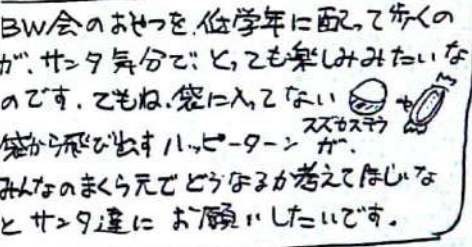 BW会のおやつを、低学年に配って歩くの
が、サンタ気分で、とっても楽しみみたいな
のです。でもね、袋に入ってない や
スズカステラ
袋から飛び出すハッピーターン が、
みんなのまくら元でどうなるか考えてほしいな
とサンタ達にお願いしたいです。